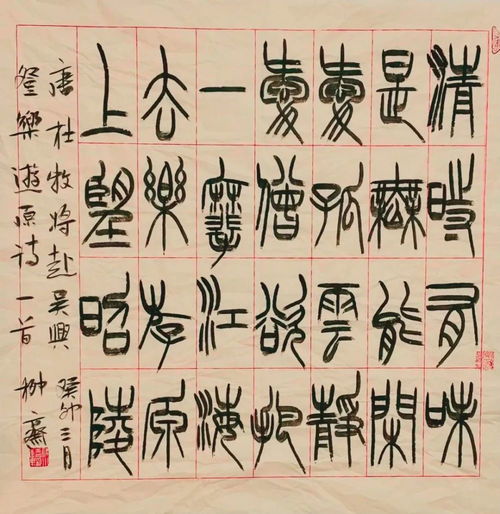 清時有味
是無能閑
愛孤雲靜
愛僧欲把
一麾江海
去樂斿原
上望昭陵
唐杜牧将赴吳興 癸卯三月
登樂遊原诗一首